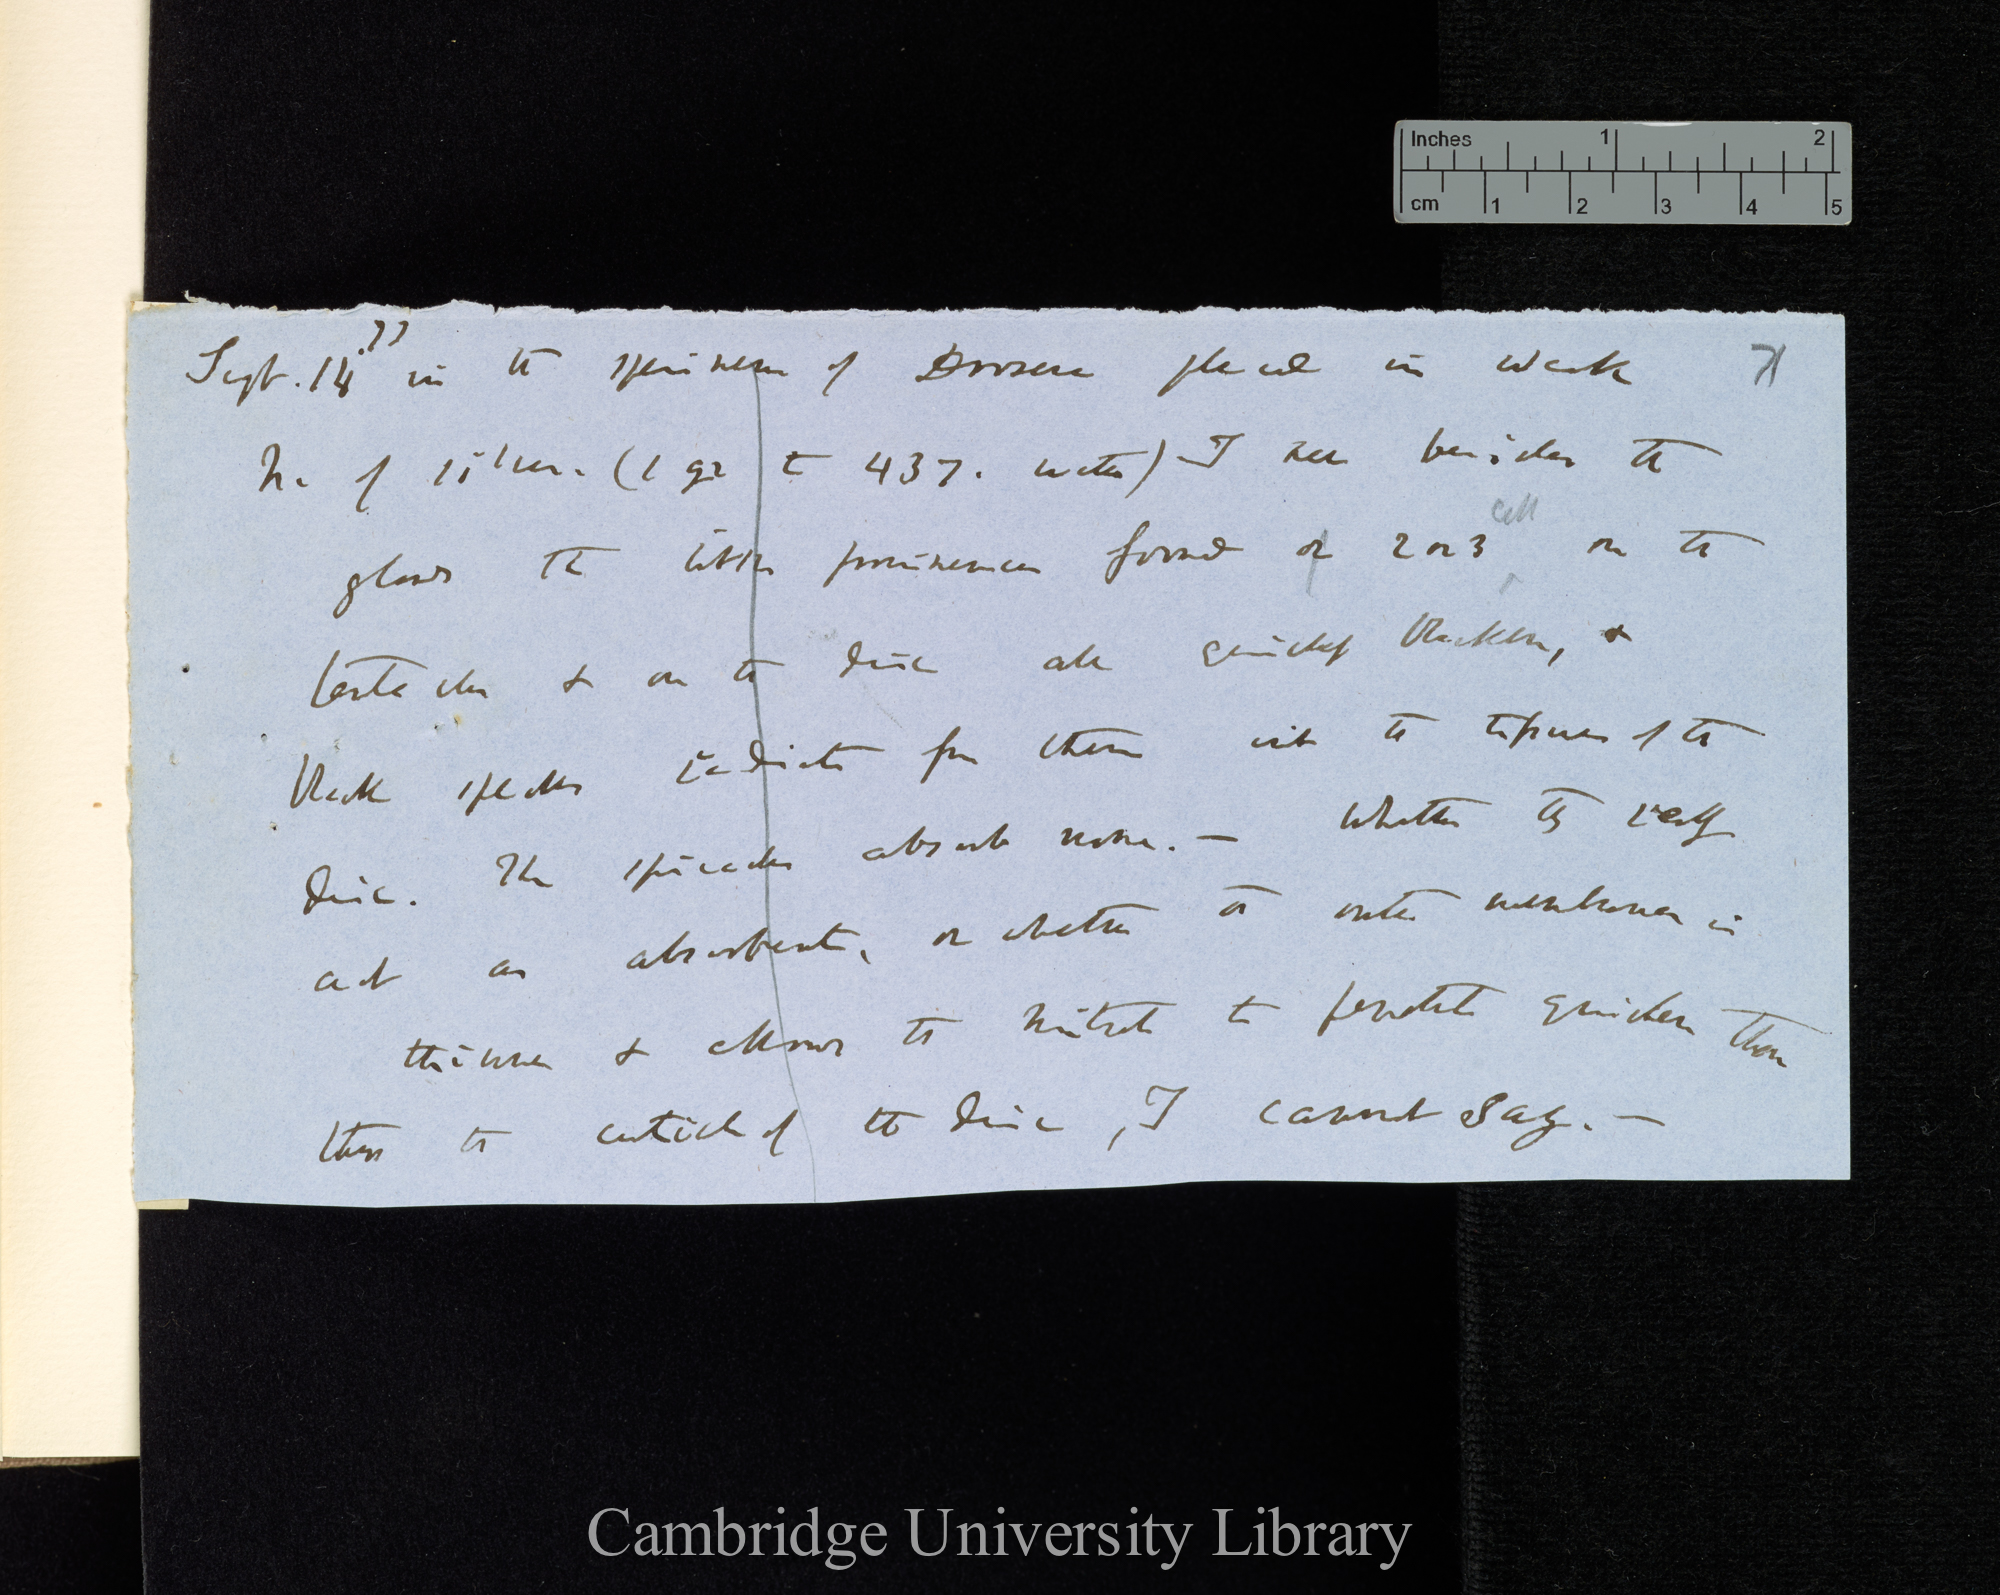 Inches 1 2
cm 1 2 3 4 5
Sept. 14 77 in the specimen of Drosera placed in weak 71
N. of silver. (1 gr to 437. water) I see besides the
glands the little prominences formed of 2 or 3 cell on the
tentacles & on the disc are quickly blacken, &
black specks radiate from them into the tissues of the
disc. The spiracles absorb none. — Whether they really
act as absorbent, or whether the outer membrane is
thinner & allows the nitrate to penetrate quicker than
thro the cuticle of the disc, I cannot say. —
Cambridge University Library